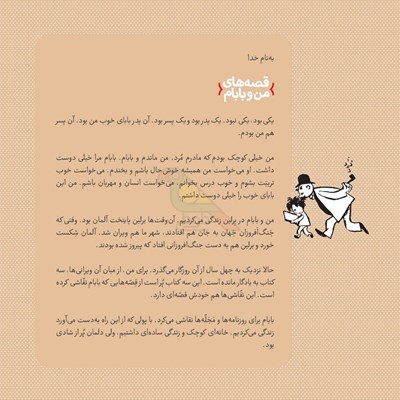 به‌نام خدا
قصه‌های
من و بابام
یکی بود، یکی نبود. یک پدر بود و یک پسر بود. آن پدر بابای خوب من بود. آن پسر
هم من بودم.
من خیلی کوچک بودم که مادرم مُرد. من ماندم و بابام. بابام مرا خیلی دوست
داشت. او می‌خواست من همیشه خوش‌حال باشم و بخندم. می‌خواست خوب
تربیَت بشوم و خوب درس بخوانم. می‌خواست انسان و مهربان باشم. من این
بابای خوب را خیلی دوست داشتم.
من و بابام در برلین زندگی می‌کردیم. آن‌وقت‌ها برلین پایتخت آلمان بود. وقتی که
جنگ‌افروزان جهان به جان هم افتادند، شهر ما هم ویران شد. آلمان شکست
خورد و برلین هم به دست جنگ‌افروزانی افتاد که پیروز شده بودند.
حالا نزدیک به چهل سال از آن روزگار می‌گذرد. برای من، از میان آن ویرانی‌ها، سه
کتاب به یادگار مانده است. این سه کتاب پُر است از قصّه‌هایی که بابام نقّاشی کرده
است. این نقّاشی‌ها هم خودش قصّه‌ای دارد.
بابام برای روزنامه‌ها و مَجَلّه‌ها نقاشی می‌کرد. با پولی که از این راه به‌دست می‌آورد
زندگی می‌کردیم. خانه‌ای کوچک و زندگی ساده‌ای داشتیم. ولی دلمان پُر از شادی
بود.